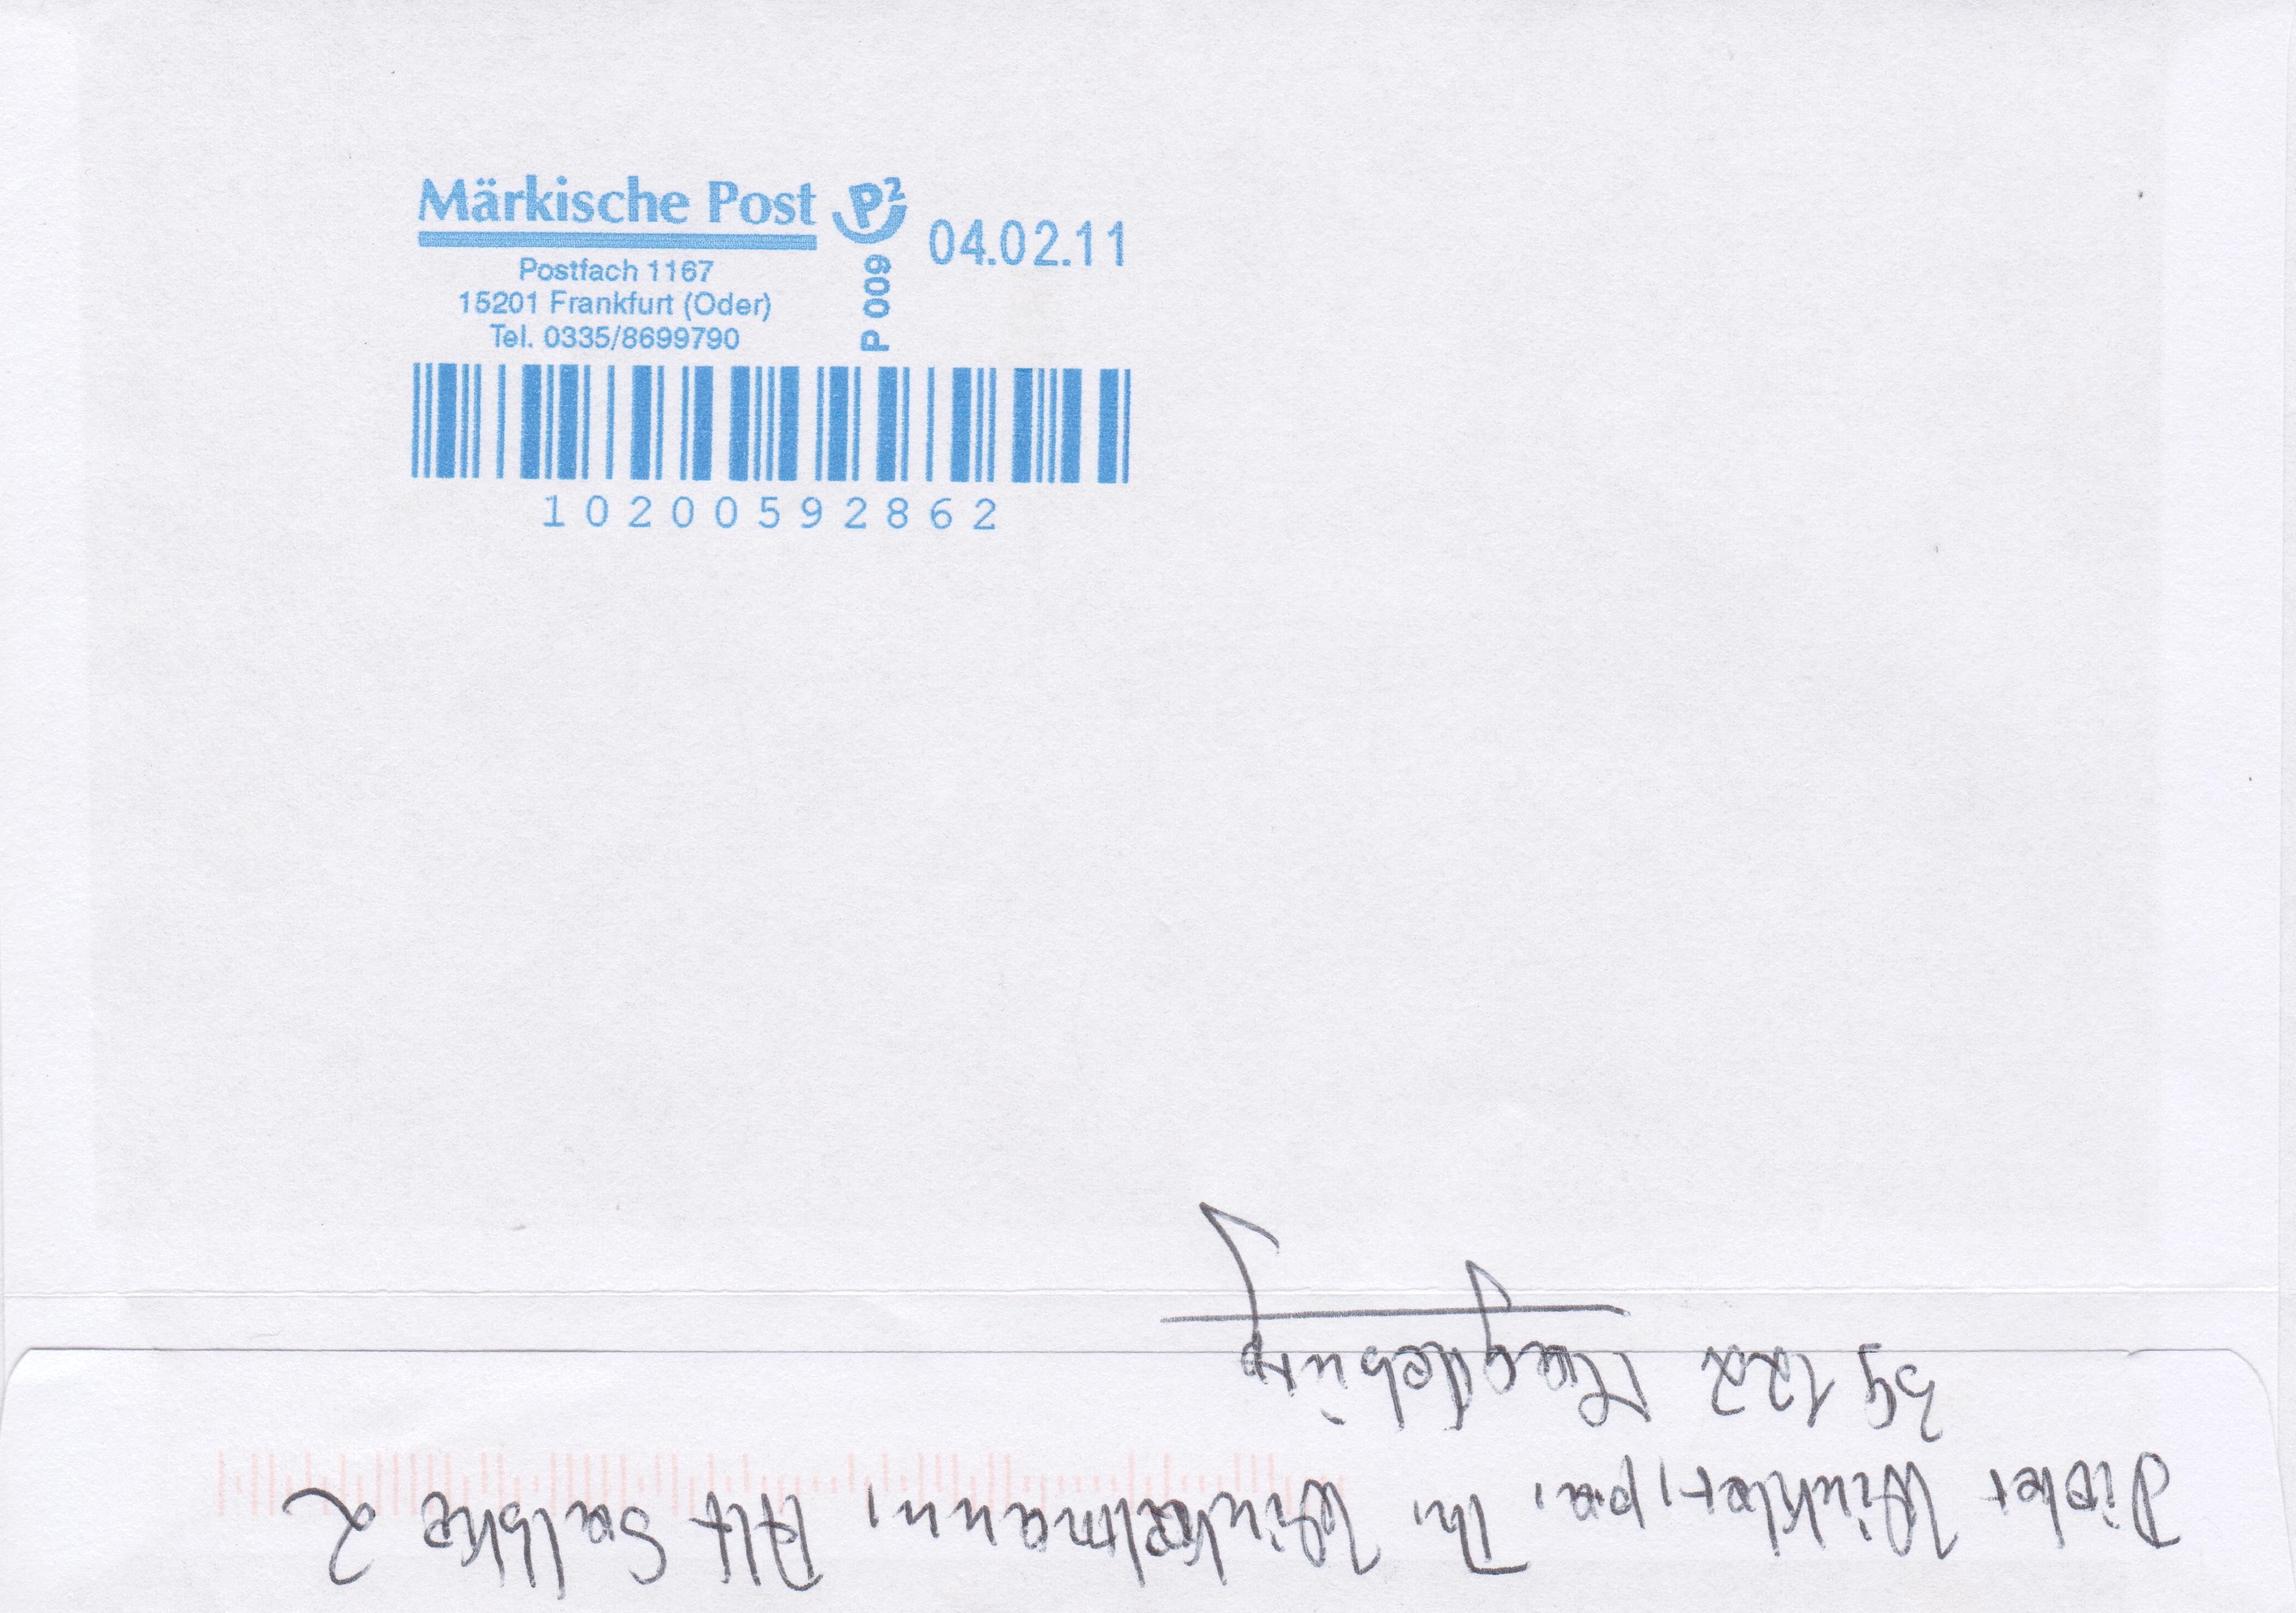 Märkische Post P²
04.02.11
Postfach 1167
15201 Frankfurt (Oder)
Tel. 0335/8699790
P 009
10200592862
Dieter Winkler, p.a. Th. Winkelmann, Alt Salbke 2
39122 Magdeburg